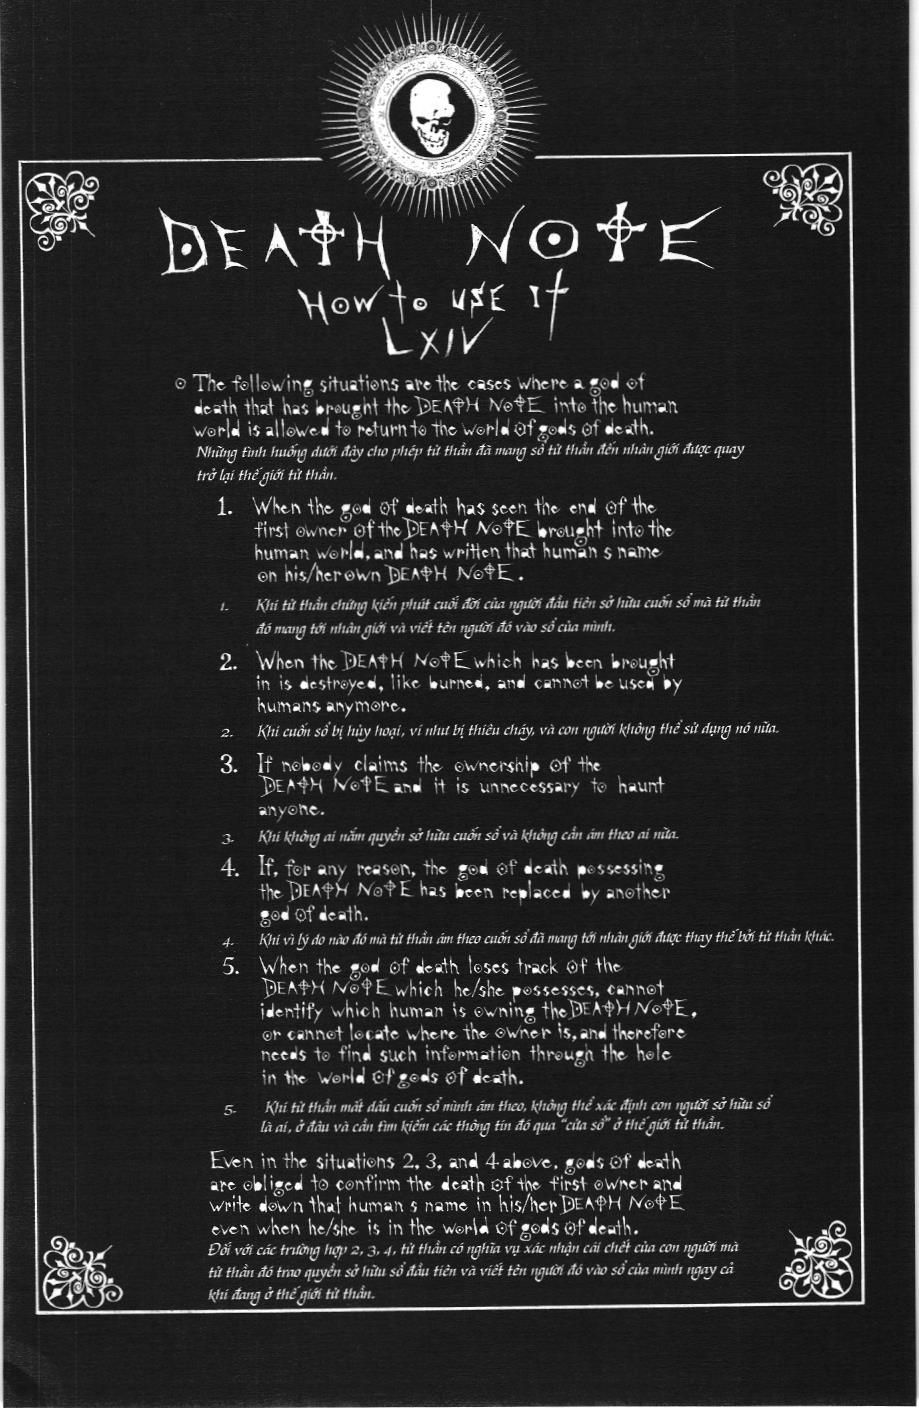 DEATH NOTE
HOW TO USE IT
LXIV
The following situations are the cases where a god of
death that has brought the DEATH NOTE into the human
world is allowed to return to the world of gods of death.
Những tình huống dưới đây cho phép tử thần đã mang sổ tử thần đến nhân giới được quay
trở lại thế giới tử thần.
1. When the god of death has seen the end of the
first owner of the DEATH NOTE brought into the
human world, and has written that human s name
on his/her own DEATH NOTE.
1. Khi tử thần chứng kiến phút cuối đời của người đầu tiên sở hữu cuốn sổ mà tử thần
đó mang tới nhân giới và viết tên người đó vào sổ của mình.
2. When the DEATH NOTE which has been brought
in is destroyed, like burned, and cannot be used by
humans anymore.
2. Khi cuốn sổ bị hủy hoại, ví như bị thiêu cháy, và con người không thể sử dụng nó nữa.
3. If nobody claims the ownership of the
DEATH NOTE and it is unnecessary to haunt
anyone.
3. Khi không ai nắm quyền sở hữu cuốn sổ và không cần ám theo ai nữa.
4. If, for any reason, the god of death possessing
the DEATH NOTE has been replaced by another
god of death.
4. Khi vì lý do nào đó mà tử thần ám theo cuốn sổ đã mang tới nhân giới được thay thế bởi tử thần khác.
5. When the god of death loses track of the
DEATH NOTE which he/she possesses, cannot
identify which human is owning the DEATH NOTE,
or cannot locate where the owner is, and therefore
needs to find such information through the hole
in the world of gods of death.
5. Khi tử thần mất dấu cuốn sổ mình ám theo, không thể xác định con người sở hữu sổ
là ai, ở đâu và cần tìm kiếm các thông tin đó qua "cửa sổ" ở thế giới tử thần.
Even in the situations 2, 3, and 4 above, gods of death
are obliged to confirm the death of the first owner and
write down that human s name in his/her DEATH NOTE
even when he/she is in the world of gods of death.
Đối với các trường hợp 2, 3, 4, tử thần có nghĩa vụ xác nhận cái chết của con người mà
tử thần đó trao quyền sở hữu sổ đầu tiên và viết tên người đó vào sổ của mình ngay cả
khi đang ở thế giới tử thần.